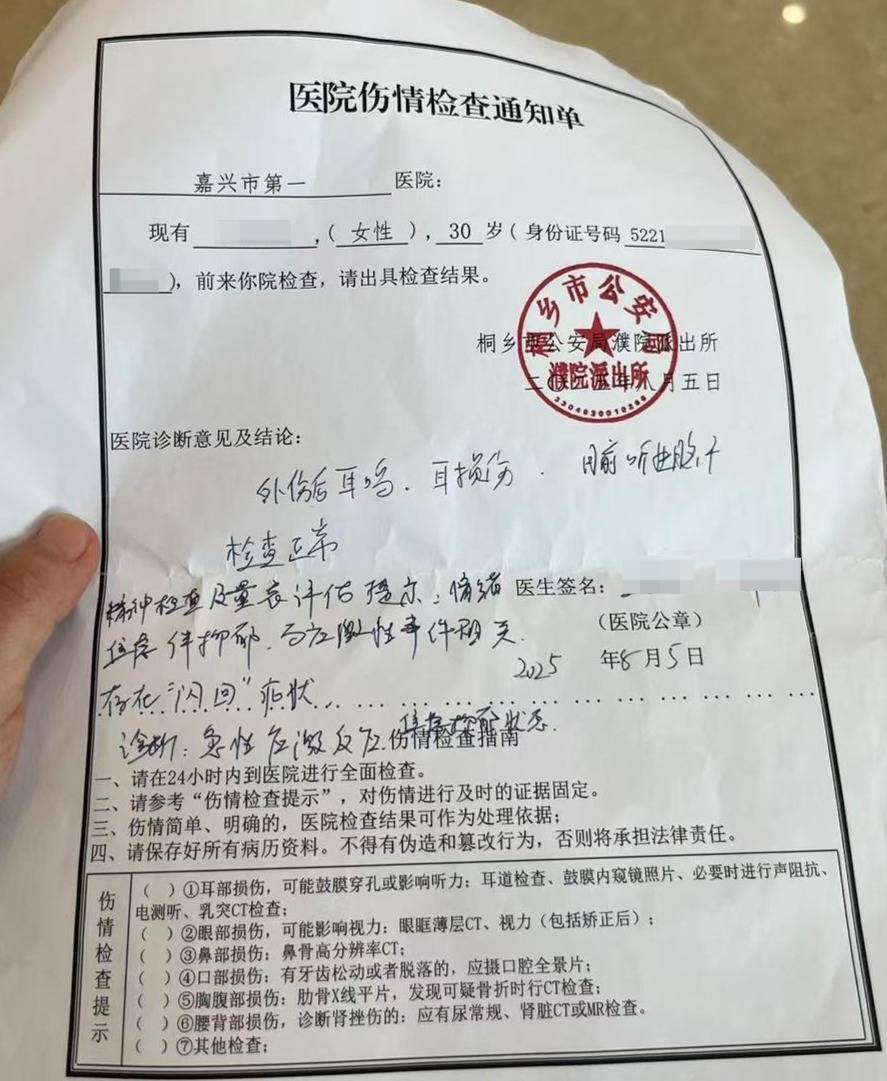 医院伤情检查通知单
嘉兴市第一 医院：
现有 ，（女性），30 岁（身份证号码 5221
），前来你院检查，请出具检查结果。
桐乡市公安局濮院派出所
二〇二五年八月五日
桐乡市公安局
濮院派出所
医院诊断意见及结论：
外伤后耳鸣、耳损伤. 目前听
检查正常
精神检查及量表评估提示：情绪 医生签名：
焦虑伴抑郁，与应激性事件相关. （医院公章）
2025 年8月5日
存在“闪回”症状
诊断：急性应激反应. 焦虑抑郁状态.
伤情检查指南
一、请在24小时内到医院进行全面检查。
二、请参考“伤情检查提示”，对伤情进行及时的证据固定。
三、伤情简单、明确的，医院检查结果可作为处理依据；
四、请保存好所有病历资料。不得有伪造和篡改行为，否则将承担法律责任。
伤情检查提示
（ ）①耳部损伤，可能鼓膜穿孔或影响听力：耳道检查、鼓膜内窥镜照片、必要时进行声阻抗、
电测听、乳突CT检查；
（ ）②眼部损伤，可能影响视力：眼眶薄层CT、视力（包括矫正后）；
（ ）③鼻部损伤：鼻骨高分辨率CT；
（ ）④口部损伤：有牙齿松动或者脱落的，应摄口腔全景片；
（ ）⑤胸腹部损伤：肋骨X线平片，发现可疑骨折时行CT检查；
（ ）⑥腰背部损伤，诊断肾挫伤的：应有尿常规、肾脏CT或MR检查。
（ ）⑦其他检查；